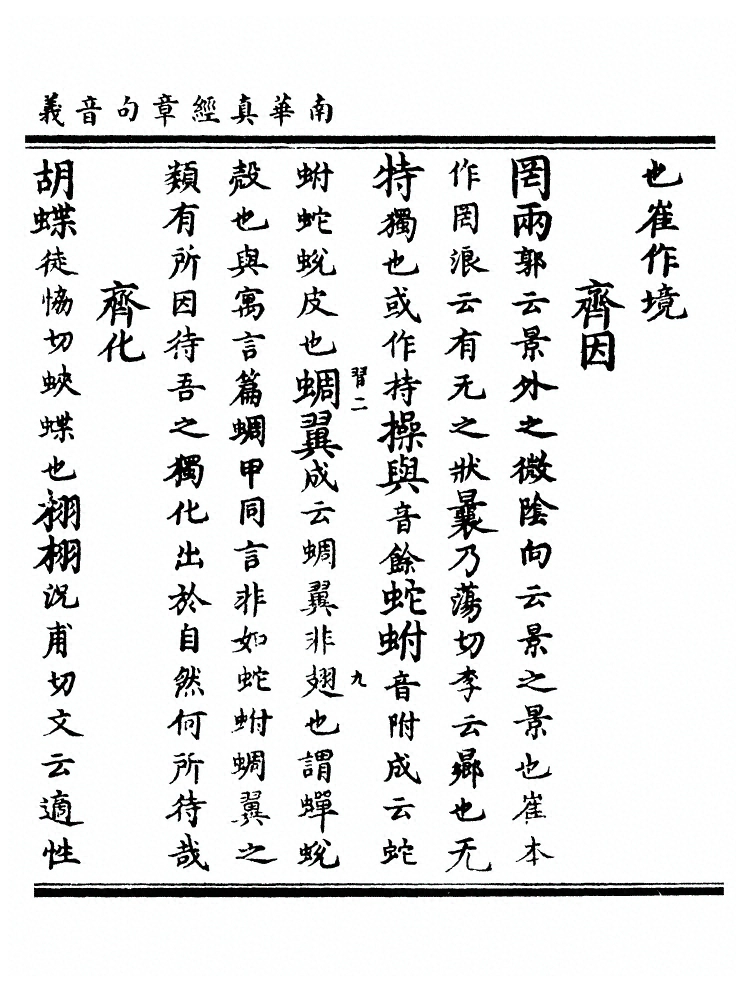 南華真經章句音義
也崔作境
齊因
罔兩郭云景外之微陰向云景之景也崔本
作罔浪云有无之狀曩乃蕩切李云曏也无
特獨也或作持操與音餘蛇蚹音附成云蛇
習二
九
蚹蛇蛻皮也蜩翼成云蜩翼非翅也謂蟬蛻
殼也與寓言篇蜩甲同言非如蛇蚹蜩翼之
類有所因待吾之獨化出於自然何所待哉
齊化
胡蝶徒恊切蛺蝶也栩栩況甫切文云適性